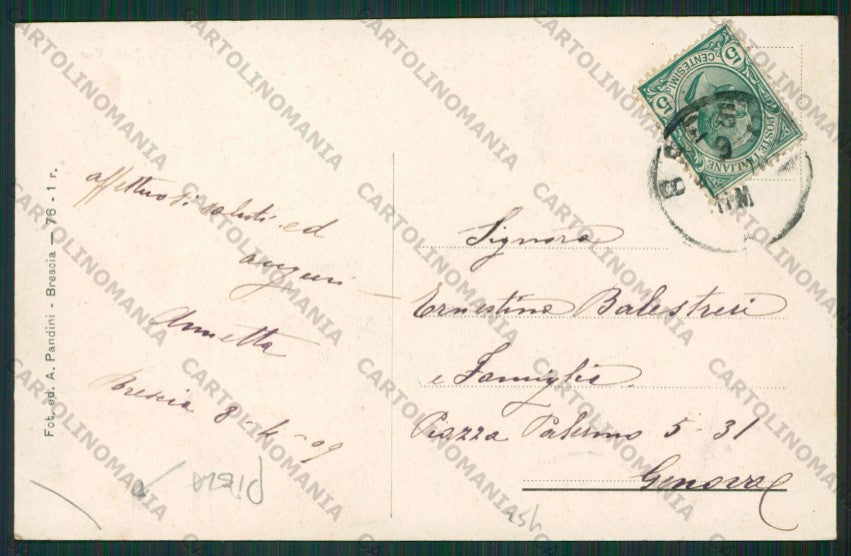 Fot. ed. A. Pandini - Brescia - 76 - 1 r.
affettuosi saluti ed
auguri
Annetta
Brescia 8-4-09
POSTE ITALIANE
CENTESIMI
5
15
Signora
Ernestina Balestreri
e Famiglia
Piazza Palermo 5-31
Genova
CARTOLINOMANIA